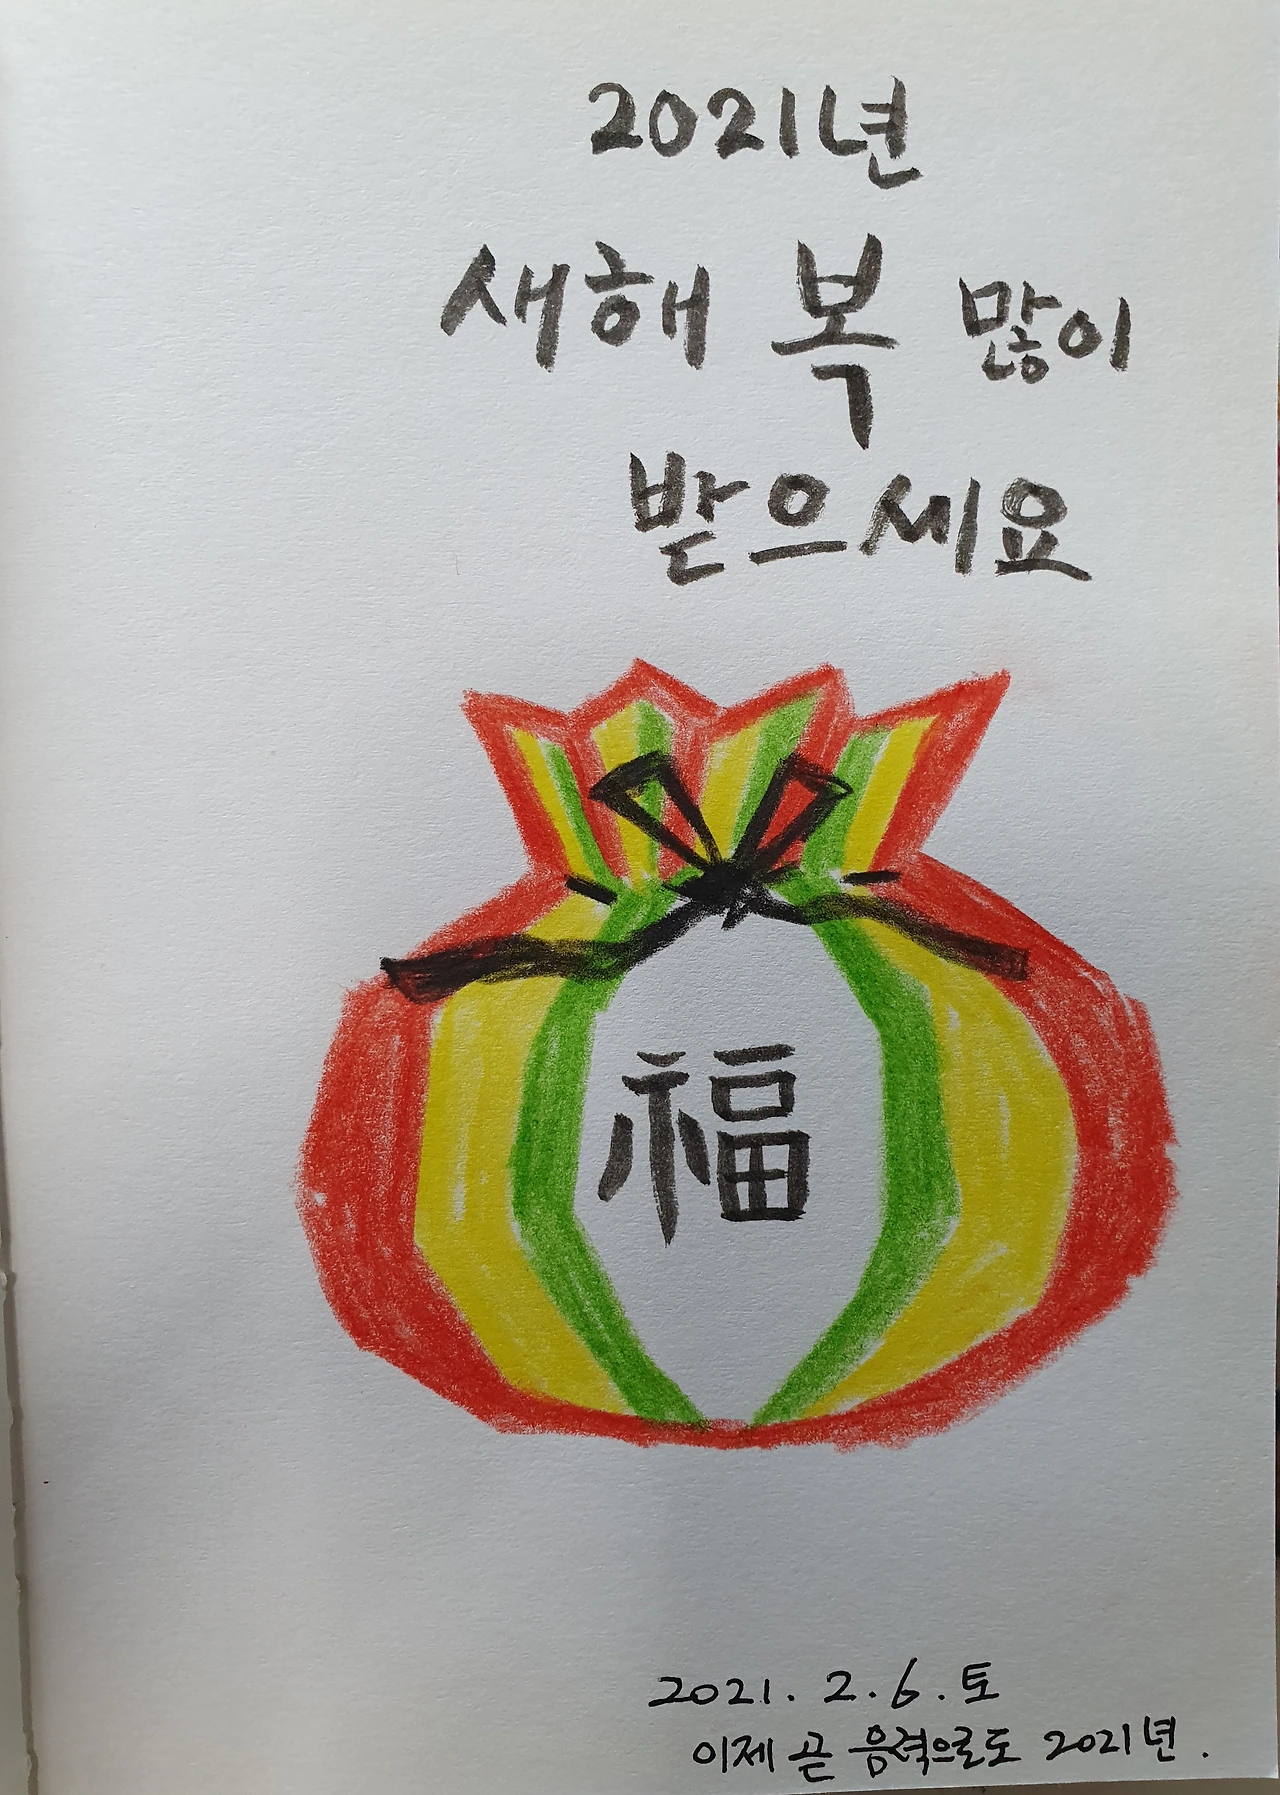 2021년
새해 복 많이
받으세요
福
2021. 2. 6. 토
이제 곧 음력으로도 2021년.